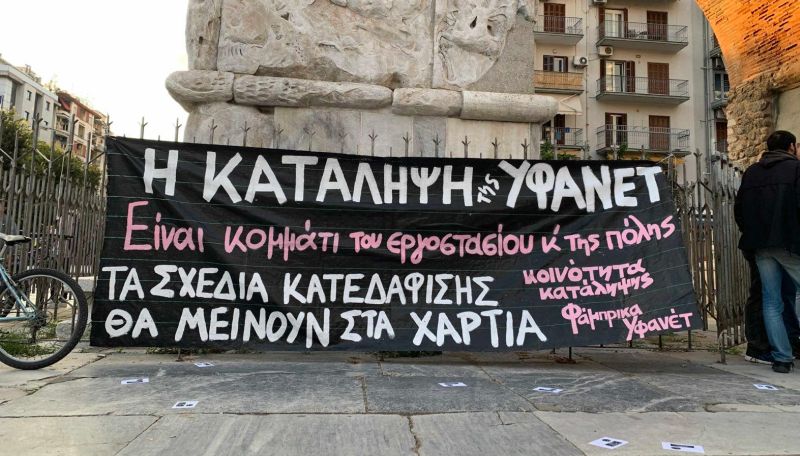 Η ΚΑΤΑΛΗΨΗ της ΥΦΑΝΕΤ
Είναι κομμάτι του εργοστασίου κ' της πόλης
ΤΑ ΣΧΕΔΙΑ ΚΑΤΕΔΑΦΙΣΗΣ
ΘΑ ΜΕΙΝΟΥΝ ΣΤΑ ΧΑΡΤΙΑ
κοινότητα
κατάληψης
Φάμπρικα
Υφανέτ